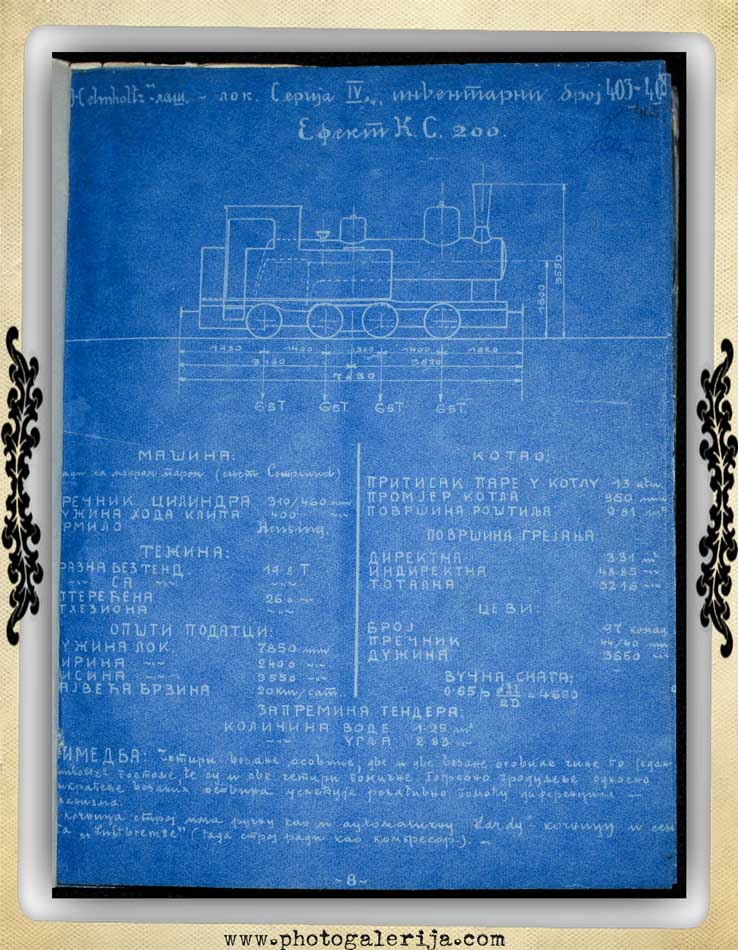 "Helmholtz"-лаш. - лок. Серија IV, инвентарни број 403-408
Ефект К.С. 200.
3550
1600
1430 1400 1360 1400 1620
7830
6·5Т 6·5Т 6·5Т 6·5Т
МАШИНА:
са мокром паром (сист. Compound)
РЕЧНИК ЦИЛИНДРА 310/460 mm
УЖИНА ХОДА КЛИПА 400 -"-
РМИЛО Heusing.
ТЕЖИНА:
РАЗНА БЕЗ ТЕНД. 19·8 Т
-"- СА -"- -"-
ПТЕРЕЋЕНА 26·0 -"-
ТХЕЗИОНА -"-
ОПШТИ ПОДАТЦИ:
УЖИНА ЛОК. 7850 mm
ИРИНА -"- 2400 -"-
ИСИНА -"- 3550 -"-
АЈВЕЋА БРЗИНА 20 km/сат.
КОТАО:
ПРИТИСАК ПАРЕ У КОТЛУ 13 atm.
ПРОМЈЕР КОТЛА 950 mm
ПОВРШИНА РОШТИЉА 0·81 m²
ПОВРШИНА ГРЕЈАЊА
ДИРЕКТНА 3·31 m²
ИНДИРЕКТНА 48·85 -"-
ТОТАЛНА 52·16 -"-
ЦЕВИ:
БРОЈ 97 комад.
ПРЕЧНИК 44/40 mm
ДУЖИНА 3660 -"-
ВУЧНА СНАГА:
0·65 p d²l/2D = 4680
ЗАПРЕМИНА ТЕНДЕРА:
КОЛИЧИНА ВОДЕ 1·25 m³
-"- УГЉА 2·83 -"-
ИМЕДБА: Четири везане осовине, две и две везане осовине чине по један
постоље, те су и све четири помичне. Попречно
везаних осовина успетује релативно помоћу диференција –
Кочница строј има ручну као и аутоматичну Hardy-кочницу и
"Luftbremse" (тада строј ради као компресор). –
- 8 -
www.photogalerija.com